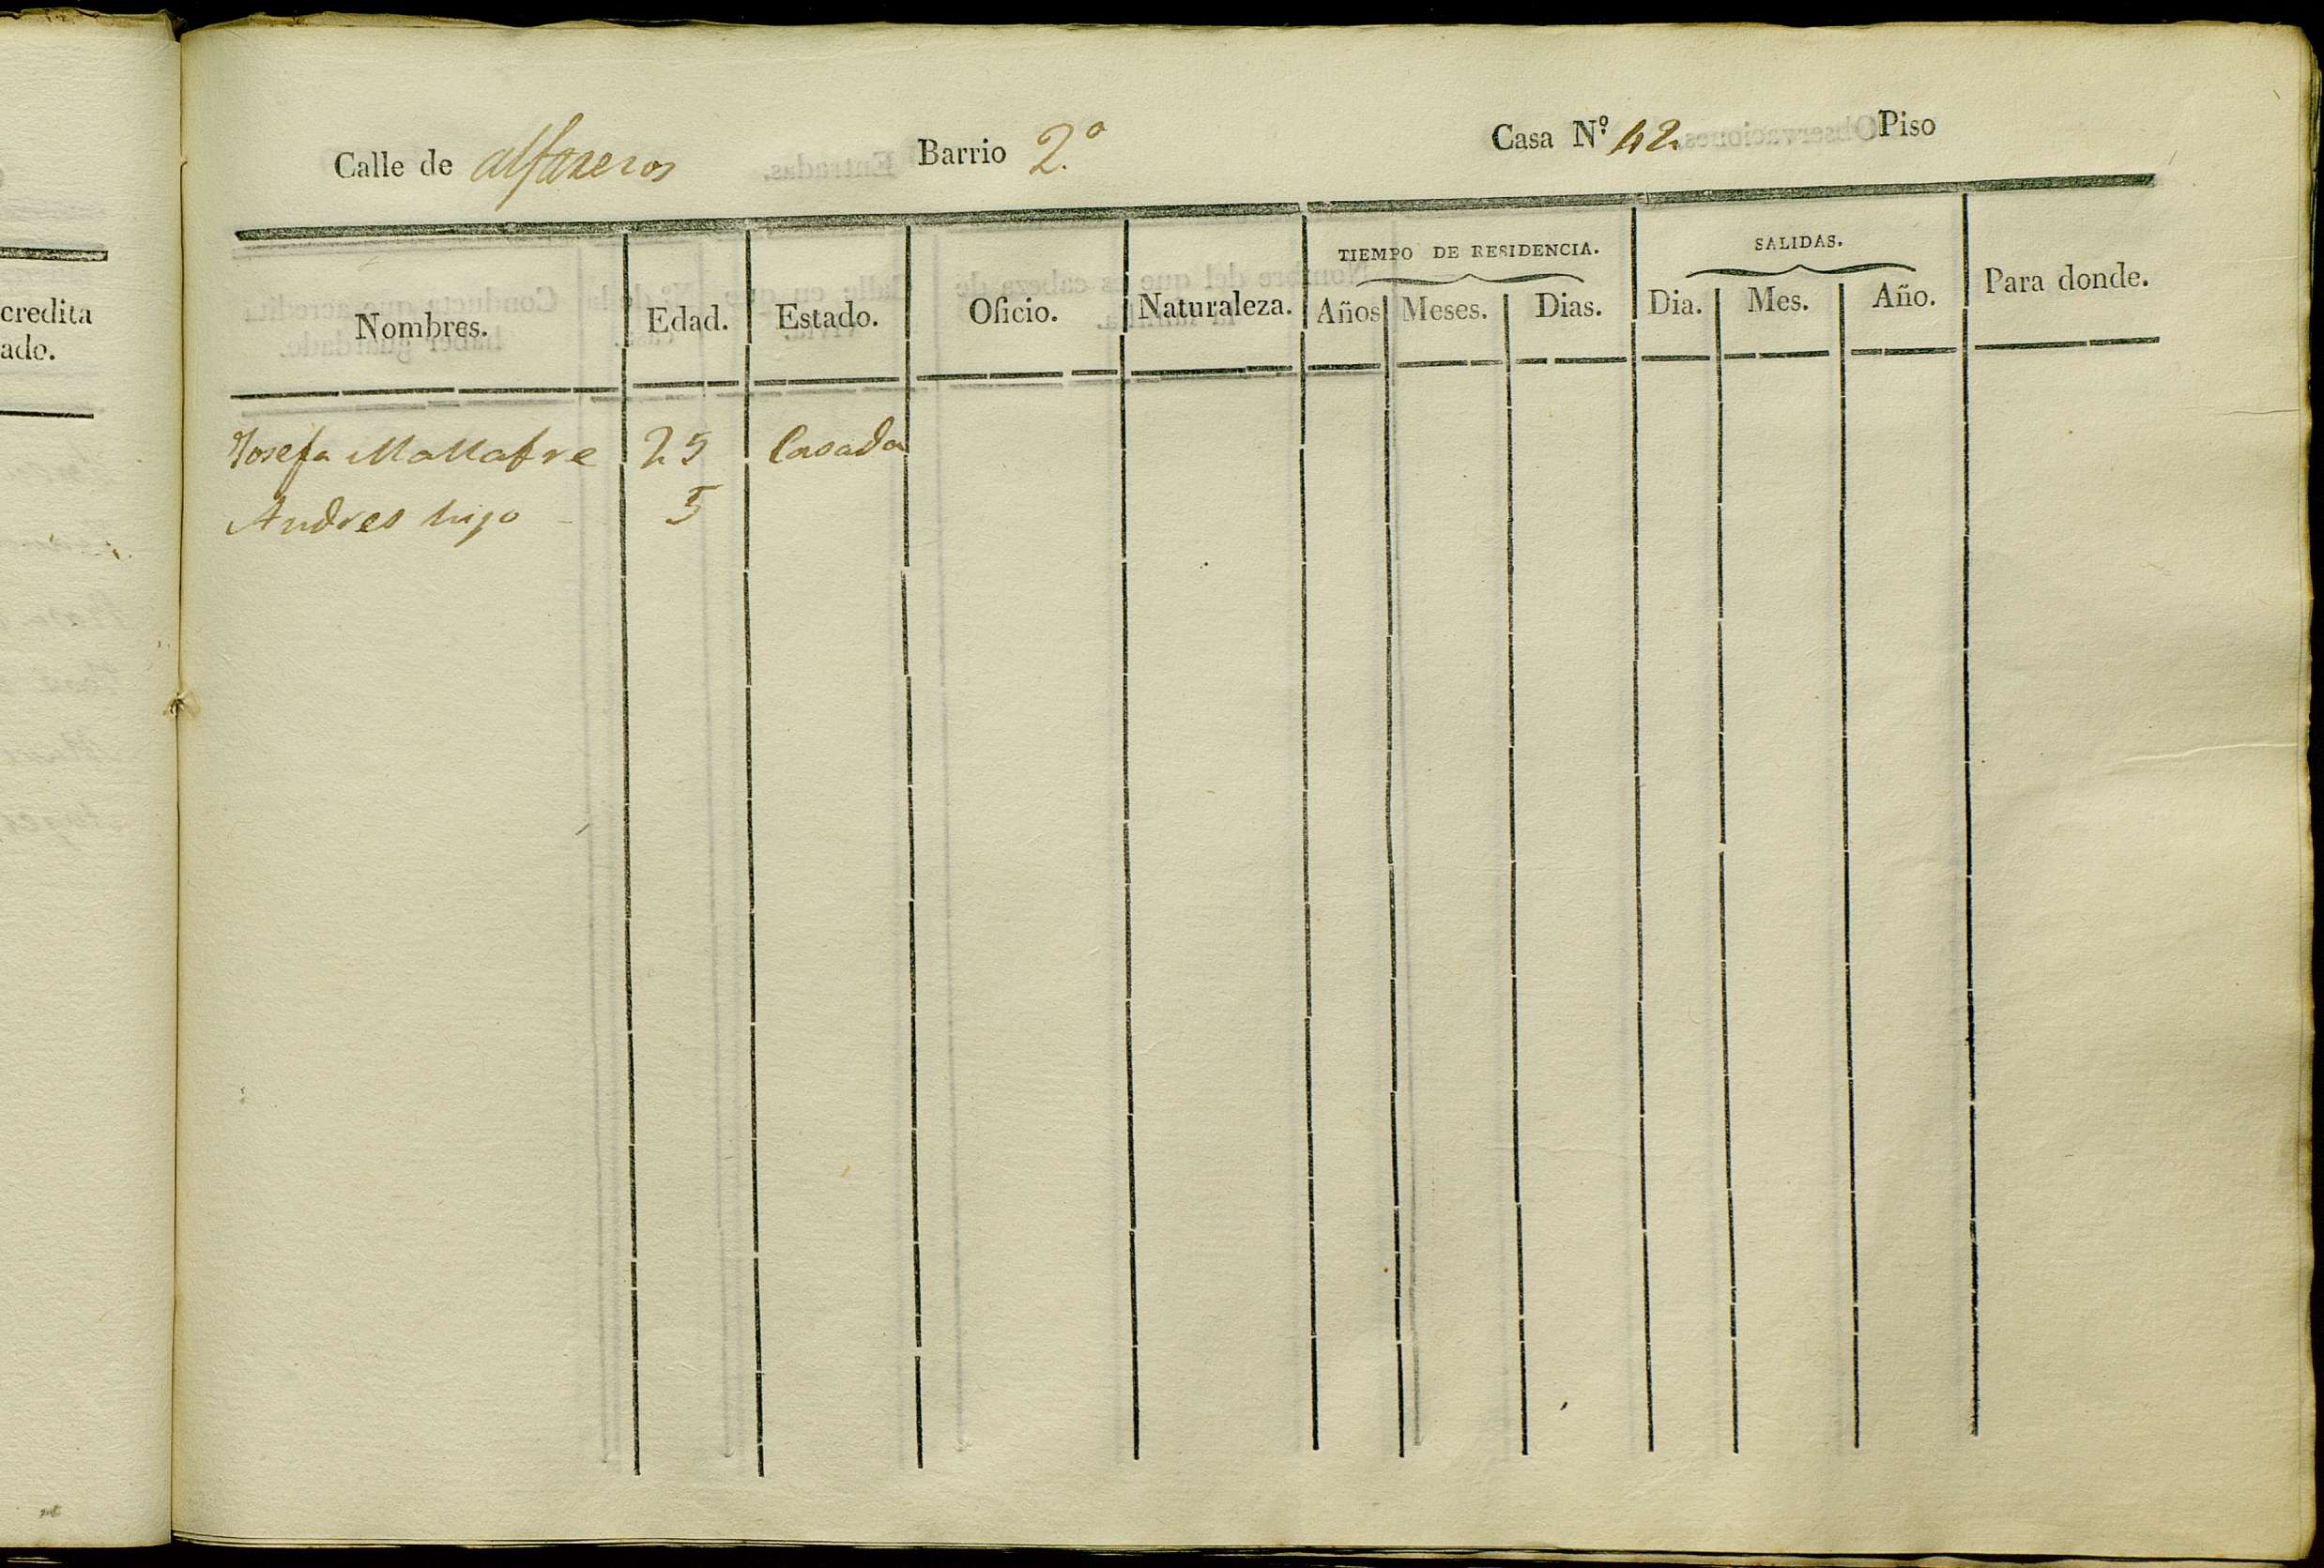 credita
ado.
Calle de alfareros Barrio 2.º Casa N.º 42. Piso
Nombres. Edad. Estado. Oficio. Naturaleza. TIEMPO DE RESIDENCIA. Años Meses. Dias. SALIDAS. Dia. Mes. Año. Para donde.
Josefa Mallafre 25 Casada
Andres hijo 5